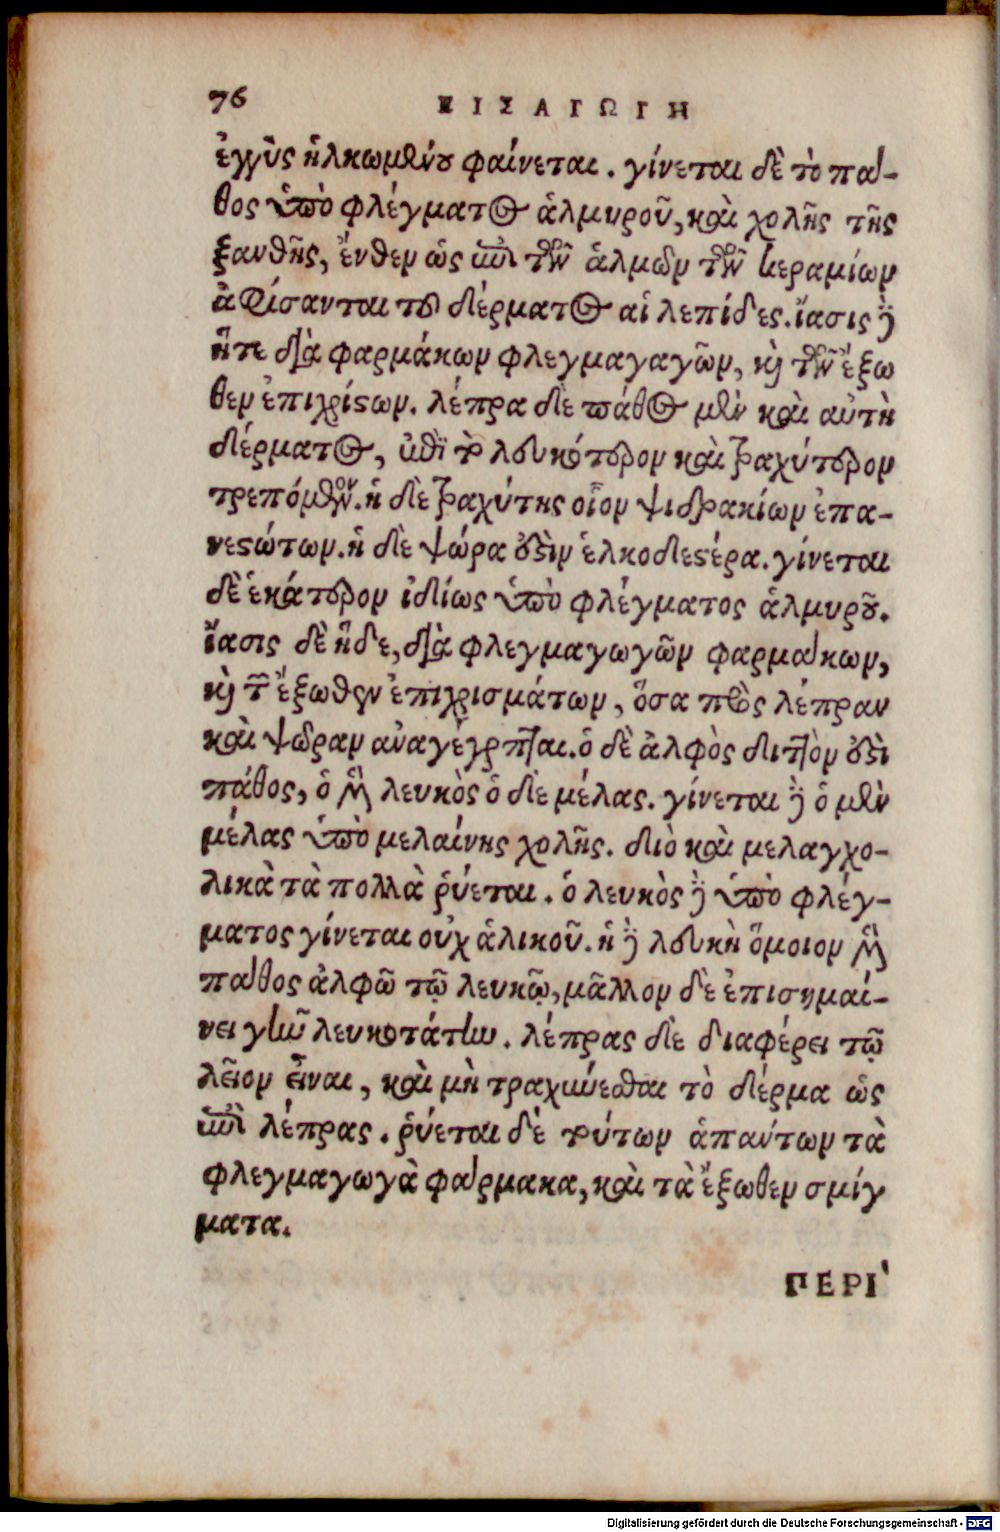 76
ΕΙΣΑΓΩΓΗ
ἐγγὺς ἡλκωμένου φαίνεται. γίνεται δὲ τὸ πά-
θος ὑπὸ φλέγματος ἁλμυροῦ, καὶ χολῆς τῆς
ξανθῆς, ἔνθεν ὡς ἐπὶ τῶν ἁλμῶν τῶν κεραμίων
ἀφίσανται τοῦ δέρματος αἱ λεπίδες. ἴασις δὲ
ἥτε διὰ φαρμάκων φλεγμαγαγῶν, καὶ τῶν ἔξω
θεν ἐπιχρίστων. λέπρα δὲ πάθος μὲν καὶ αὐτὴ
δέρματος, ἐπὶ τὸ λευκότερον καὶ τραχύτερον
τρεπόμενον. ἡ δὲ τραχύτης οἷον ψιδρακίων ἐπα-
νεστώτων. ἡ δὲ ψώρα ἐστὶν ἑλκοδεστέρα. γίνεται
δὲ ἑκάτερον ἰδίως ὑπὸ φλέγματος ἁλμυροῦ.
ἴασις δὲ ἥδε, διὰ φλεγμαγωγῶν φαρμάκων,
καὶ τῶν ἔξωθεν ἐπιχρισμάτων, ὅσα πρὸς λέπραν
καὶ ψῶραν ἀναγέγραπται. ὁ δὲ ἀλφὸς διττὸν ἐστὶ
πάθος, ὁ μὲν λευκὸς ὁ δὲ μέλας. γίνεται δὲ ὁ μὲν
μέλας ὑπὸ μελαίνης χολῆς. διὸ καὶ μελαγχο-
λικὰ τὰ πολλὰ ῥύεται. ὁ λευκὸς δὲ ὑπὸ φλέγ-
ματος γίνεται οὐχ ἁλικοῦ. ἡ δὲ λευκὴ ὅμοιον μὲν
πάθος ἀλφῷ τῷ λευκῷ, μᾶλλον δὲ ἐπισημαί-
νει γῆν λευκοτάτην. λέπρας δὲ διαφέρει τῷ
λεῖον εἶναι, καὶ μὴ τραχύνεσθαι τὸ δέρμα ὡς
ἐπὶ λέπρας. ῥύεται δὲ τούτων ἁπάντων τὰ
φλεγμαγωγὰ φάρμακα, καὶ τὰ ἔξωθεν σμίγ
ματα.
ΠΕΡΙ'
Digitalisierung gefördert durch die Deutsche Forschungsgemeinschaft - DFG